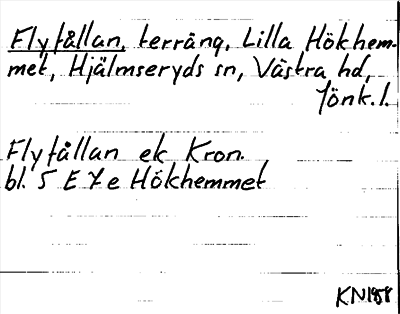 Flyfållan, terräng, Lilla Hökhem-
met, Hjälmseryds sn, Västra hd,
Jönk. l.
Flyfållan ek Kron.
bl. 5 E 7 e Hökhemmet
KN 1958